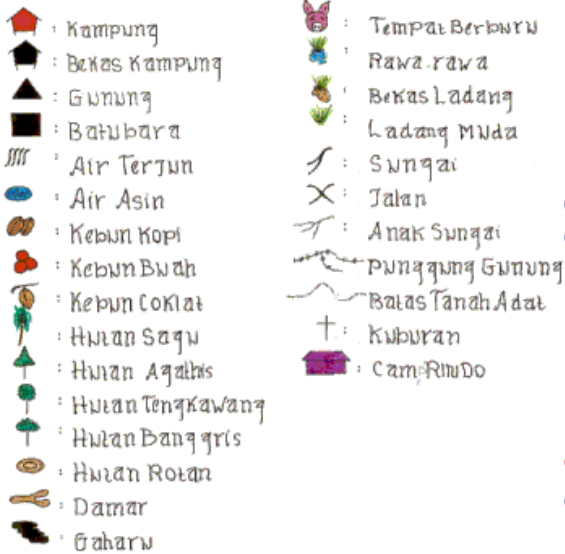 : Kampung
: Bekas Kampung
: Gunung
: Batubara
: Air Terjun
: Air Asin
: Kebun Kopi
: Kebun Buah
: Kebun Coklat
: Hutan Sagu
: Hutan Agathis
: Hutan Tengkawang
: Hutan Banggris
: Hutan Rotan
: Damar
: Gaharu
: Tempat Berburu
: Rawa-rawa
: Bekas Ladang
: Ladang Muda
: Sungai
: Jalan
: Anak Sungai
Punggung Gunung
Batas Tanah Adat
: Kuburan
: Camp